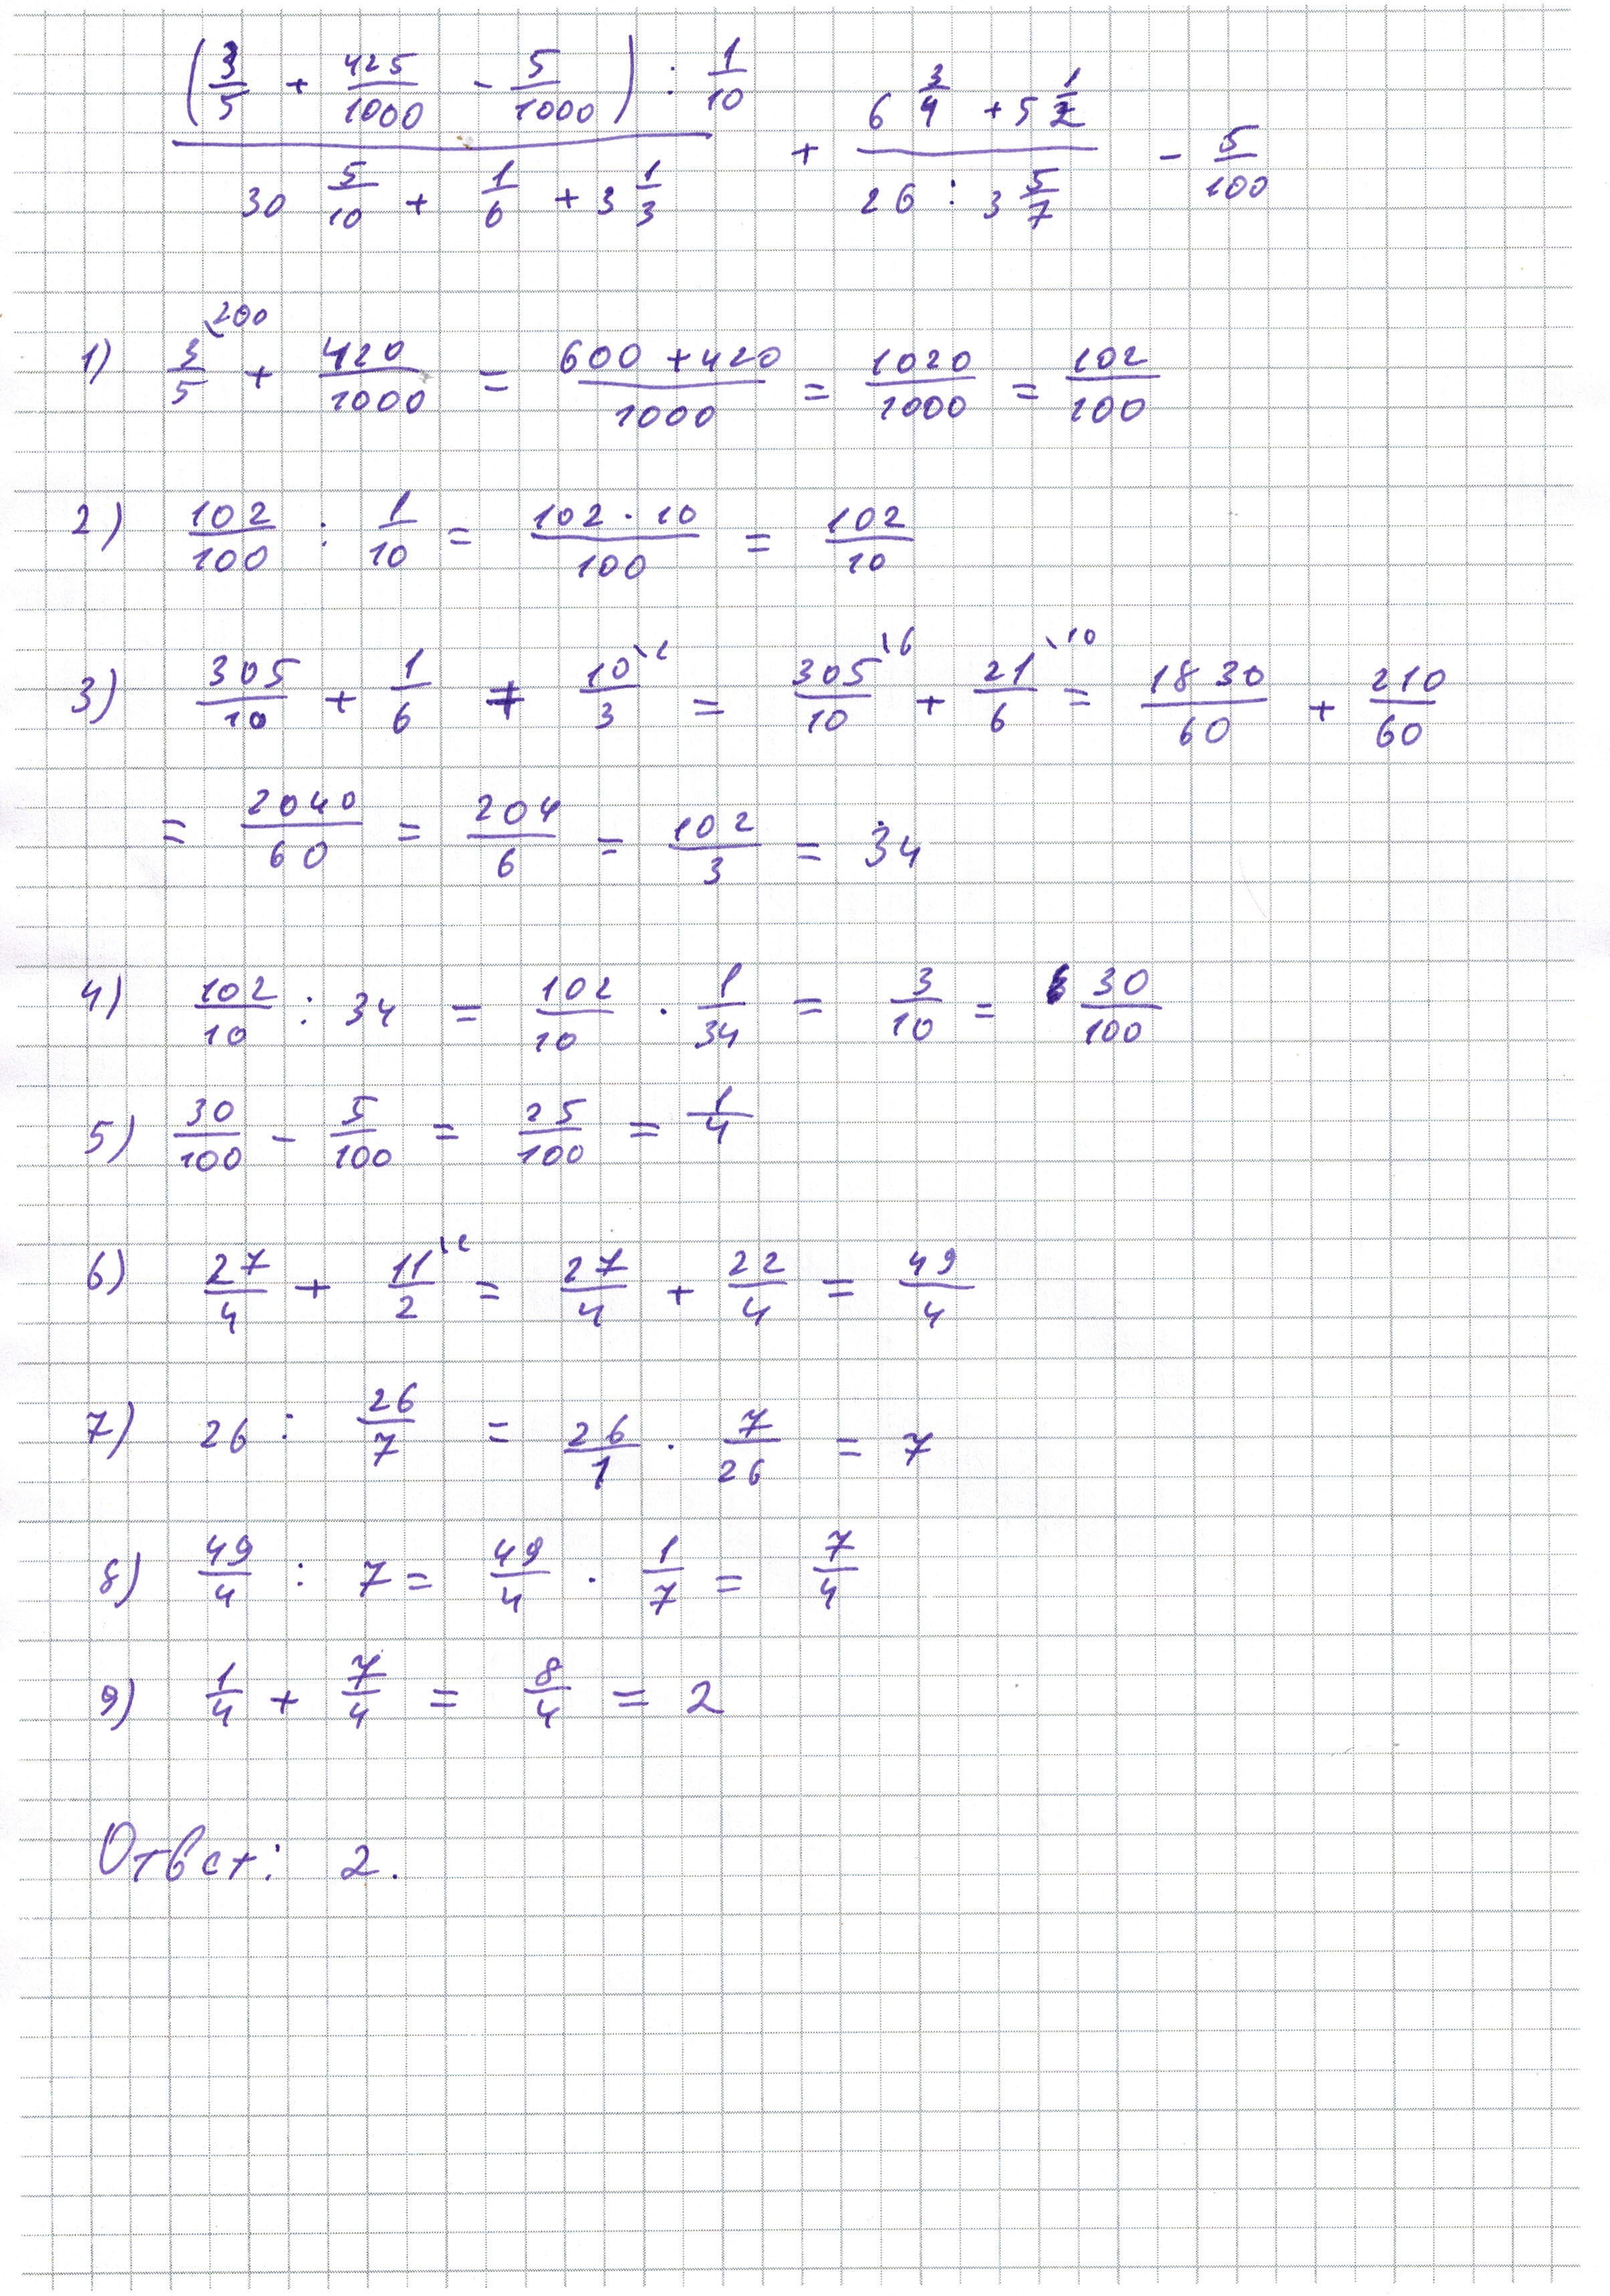 (3/5 + 425/1000 - 5/1000) : 1/10 / 30 5/10 + 1/6 + 3 1/3 + 6 3/4 + 5 1/2 / 26 : 3 5/7 - 5/100
1) 3/5 \200 + 420/1000 = 600 + 420/1000 = 1020/1000 = 102/100
2) 102/100 : 1/10 = 102 · 10/100 = 102/10
3) 305/10 + 1/6 + 10/3 \2 = 305/10 \6 + 21/6 \10 = 1830/60 + 210/60
= 2040/60 = 204/6 = 102/3 = 34
4) 102/10 : 34 = 102/10 · 1/34 = 3/10 = 30/100
5) 30/100 - 5/100 = 25/100 = 1/4
6) 27/4 + 11/2 \2 = 27/4 + 22/4 = 49/4
7) 26 : 26/7 = 26/1 · 7/26 = 7
8) 49/4 : 7 = 49/4 · 1/7 = 7/4
9) 1/4 + 7/4 = 8/4 = 2
Ответ: 2.